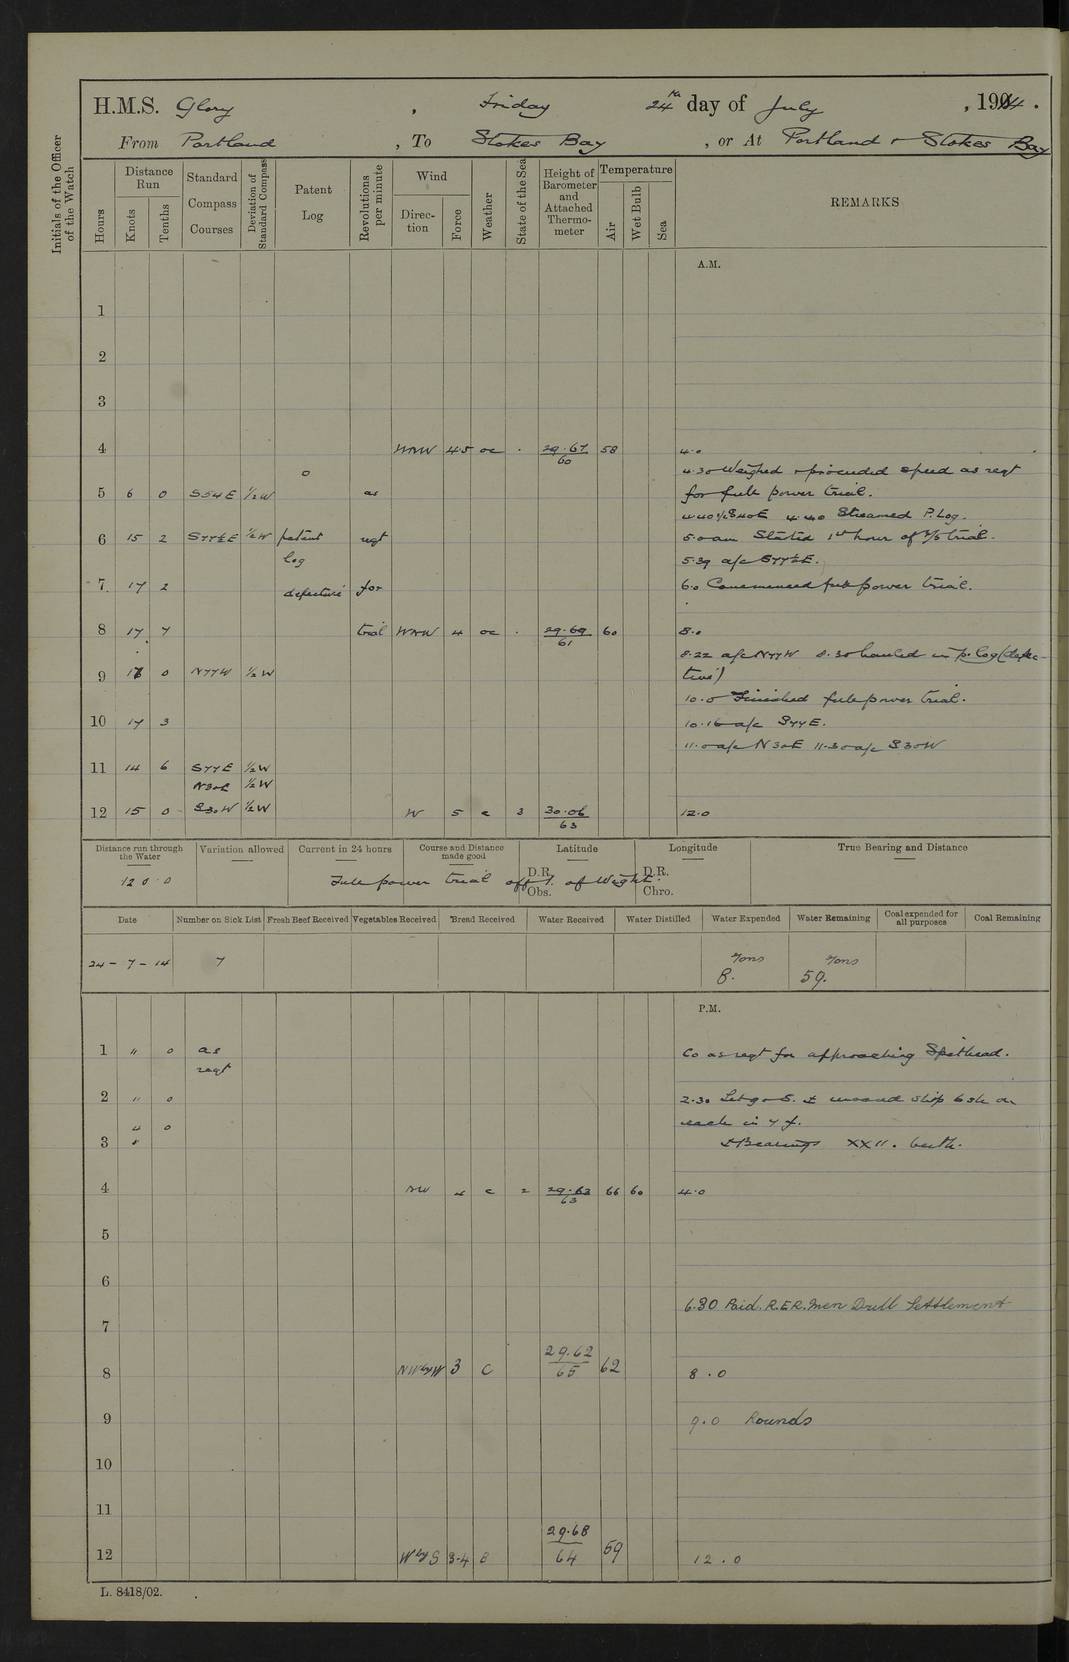 H.M.S. Glory , Friday 24th day of July , 1914 .
From Portland , To Stokes Bay , or At Portland & Stokes Bay
Initials of the Officer of the Watch
Hours
Distance Run
Knots
Tenths
Standard Compass Courses
Deviation of Standard Compass
Patent Log
Revolutions per minute
Wind
Direction
Force
Weather
State of the Sea
Height of Barometer and Attached Thermometer
Temperature
Air
Wet Bulb
Sea
REMARKS
A.M.
1
2
3
4 WNW 4.5 oc . 29.67 60 58 4.0
0
4.30 Weighed & proceeded speed as reqt
5 6 0 S54E ½W as for full power trial.
4.40 Streamed P. Log.
6 15 2 S77½E ½W patent reqt 5.0 am Started 1st hour of trial.
log 5.39 a/c S77½E.
7 17 2 defective for 6.0 Commenced full power trial.
8 17 7 trial WNW 4 oc . 29.69 61 60 8.0
8.22 a/c N77W 8.30 hauled in p. log (defec-
9 17 0 N77W ½W tive)
10.0 Finished full power trial.
10 17 3 10.16 a/c S77E.
11.0 a/c N30E 11.30 a/c S30W
11 14 6 S77E ½W
N30E ½W
12 15 0 S30W ½W W 5 c 3 30.06 63 12.0
Distance run through the Water
Variation allowed
Current in 24 hours
Course and Distance made good
Latitude
Longitude
True Bearing and Distance
120.0 Full power trial off I. of Wight.
D.R.
Obs.
D.R.
Chro.
Date
Number on Sick List
Fresh Beef Received
Vegetables Received
Bread Received
Water Received
Water Distilled
Water Expended
Water Remaining
Coal expended for all purposes
Coal Remaining
24 - 7 - 14 7 Tons 8. Tons 59.
P.M.
1 " 0 as Co as reqt for approaching Spithead.
reqt
2 " 0 2.30 Let go S. & unused ship 6 sh on
4 0 each in 7 f.
3 8 Bearings XX11. berth.
4 NW 4 c 2 29.63 63 66 60 4.0
5
6
6.30 Paid. R.E.R. Men Drill Settlement
7
8 NWbyW 3 C 29.62 65 62 8.0
9 9.0 Rounds
10
11
12 WbyS 3-4 B 29.68 64 59 12.0
L. 8418/02.